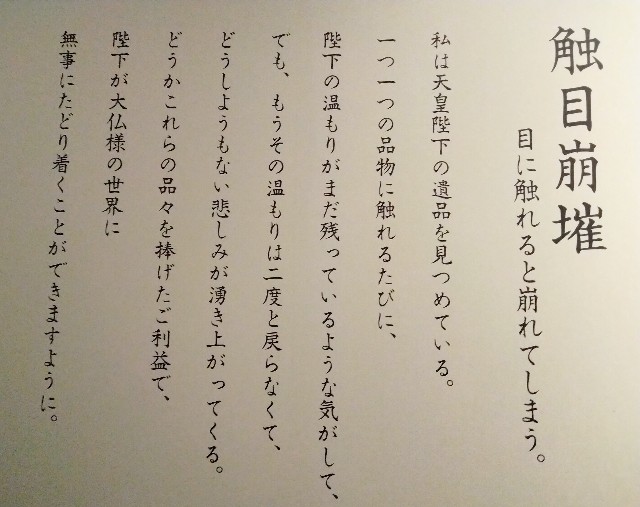 触目崩摧
目に触れると崩れてしまう。
私は天皇陛下の遺品を見つめている。
一つ一つの品物に触れるたびに、
陛下の温もりがまだ残っているような気がして、
でも、もうその温もりは二度と戻らなくて、
どうしようもない悲しみが湧き上がってくる。
どうかこれらの品々を捧げたご利益で、
陛下が大仏様の世界に
無事にたどり着くことができますように。